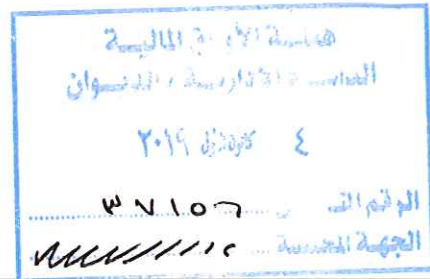 هيئة الأوراق المالية
الدائرة الإدارية / الديوان
٤ كانون أول ٢٠١٩
الرقم ٣٧١٥٦
الجهة المختصة